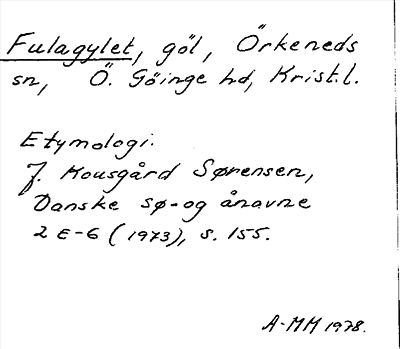 Fulagylet, göl, Örkeneds
sn, Ö. Göinge hd, Krist.l.
Etymologi:
J. Kousgård Sørensen,
Danske sø- og ånavne
2 E-G (1973), s. 155.
A-MM 1978.